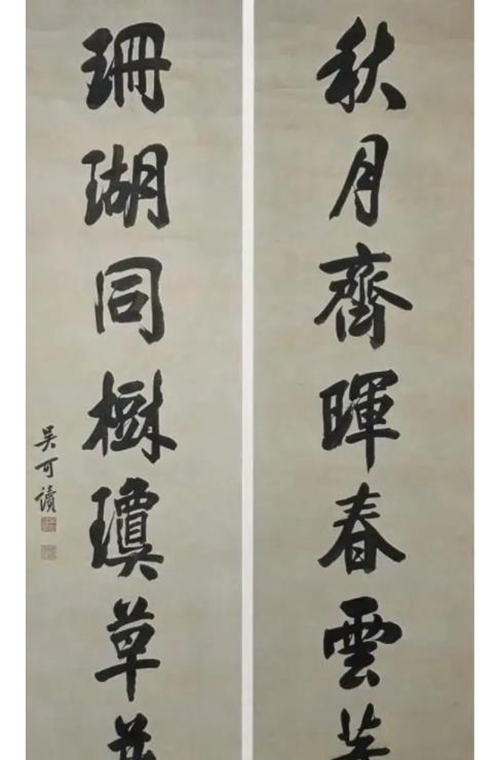 秋月齊暉春雲
珊瑚同樹瓊草
吳可讀